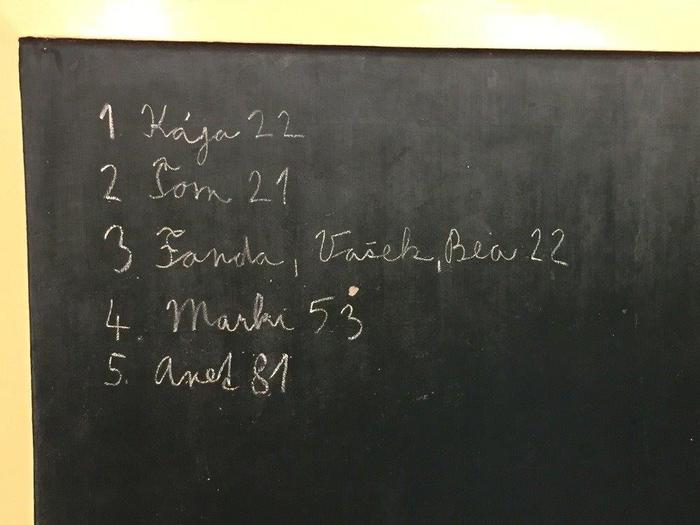 1 Kája 22
2 Tom 21
3 Fanda, Vašek, Bea 22
4. Marki 53
5. Anet 81